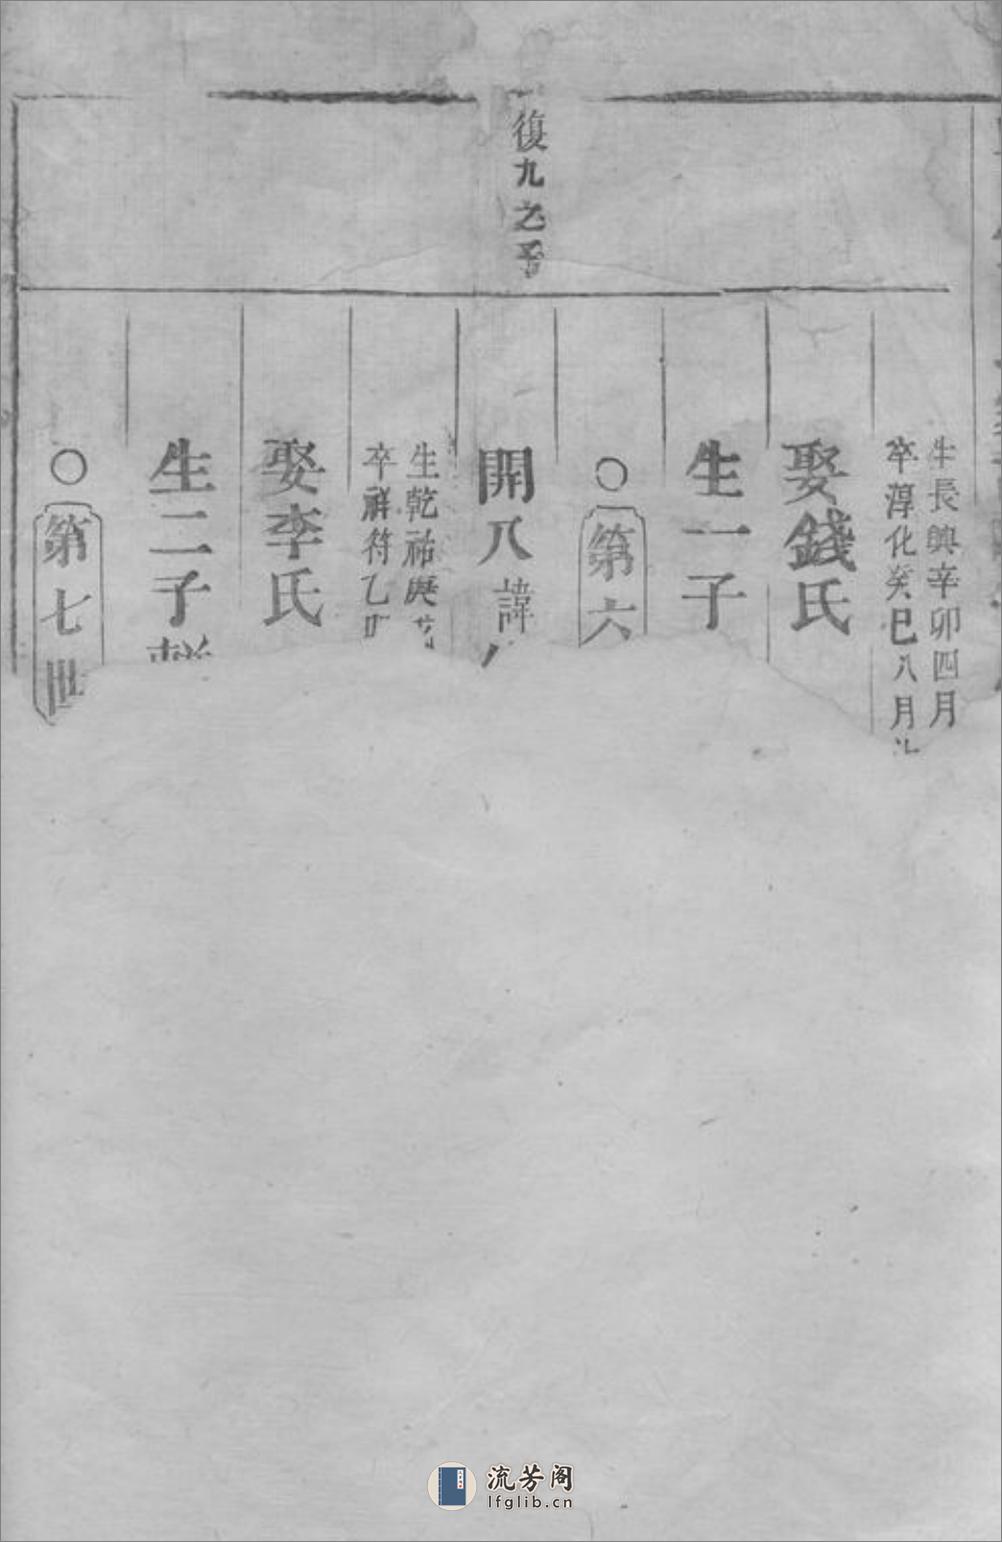 生長興辛卯四月
卒淳化癸巳八月
娶錢氏
生一子
○第六
復九之子
開八諱
生乾祐庚
卒祥符乙
娶李氏
生二子
○第七世
流芳阁
lfglib.cn